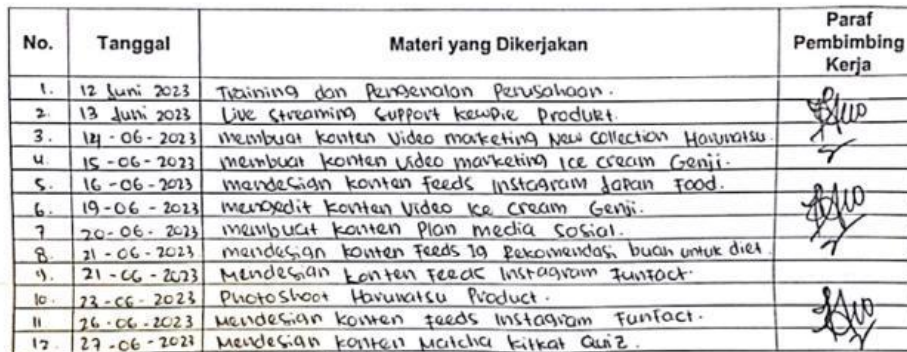 No. Tanggal Materi yang Dikerjakan Paraf Pembimbing Kerja
1. 12 Juni 2023 Training dan Pengenalan Perusahaan.
2. 13 Juni 2023 Live streaming support kewpie produkt.
3. 14-06-2023 membuat konten video marketing New Collection Harunatsu.
4. 15-06-2023 membuat konten video marketing Ice cream Genji.
5. 16-06-2023 mendesign konten feeds instagram Japan Food.
6. 19-06-2023 mengedit konten video Ice cream Genji.
7 20-06-2023 membuat konten Plan media sosial.
8. 21-06-2023 mendesign konten feeds Ig Rekomendasi buah untuk diet.
9. 21-06-2023 Mendesign konten feeds Instagram funfact.
10. 23-06-2023 Photoshoot Harunatsu Product.
11 26-06-2023 Mendesign konten feeds instagram Funfact.
12. 27-06-2023 Mendesign konten Matcha kitkat Quiz.